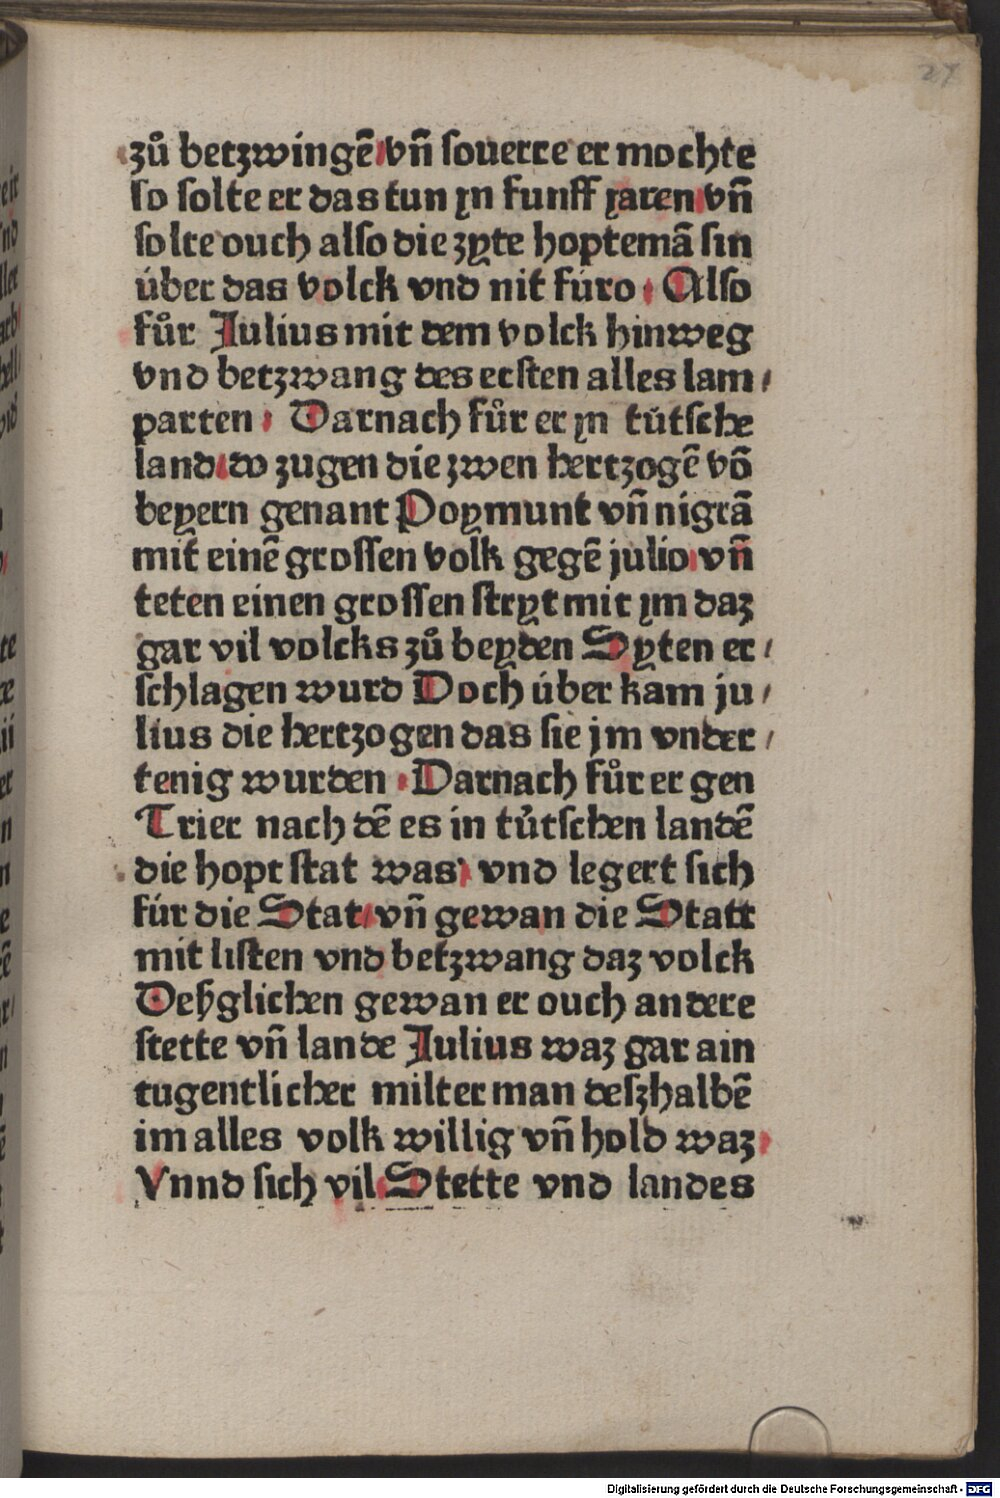 27
zů betzwingē vn̄ souerre er mochte
so solte er das tun yn funff yaren vn̄
solte ouch also die zyte hoptemā sin
über das volck vnd nit füro Also
fůr Julius mit dem volck hinweg
vnd betzwang des ersten alles lam/
parten Darnach fůr er yn tütsche
land do zugen die zwen hertzogē vō
beyern genant Poymunt vn̄ nigrā
mit einē grossen volk gegē julio vn̄
teten einen grossen stryt mit ym daz
gar vil volcks zů beyden Syten er/
schlagen wurd Doch über kam ju/
lius die hertzogen das sie jm vnder/
tenig wurden Darnach fůr er gen
Trier nach dē es in tütschen landē
die hopt stat was vnd legert sich
für die Stat vn̄ gewan die Statt
mit listen vnd betzwang daz volck
Deßglichen gewan er ouch andere
stette vn̄ lande Julius waz gar ain
tugentlicher milter man deszhalbē
im alles volk willig vn̄ hold waz
Vnnd sich vil Stette vnd landes
Digitalisierung gefördert durch die Deutsche Forschungsgemeinschaft - DFG